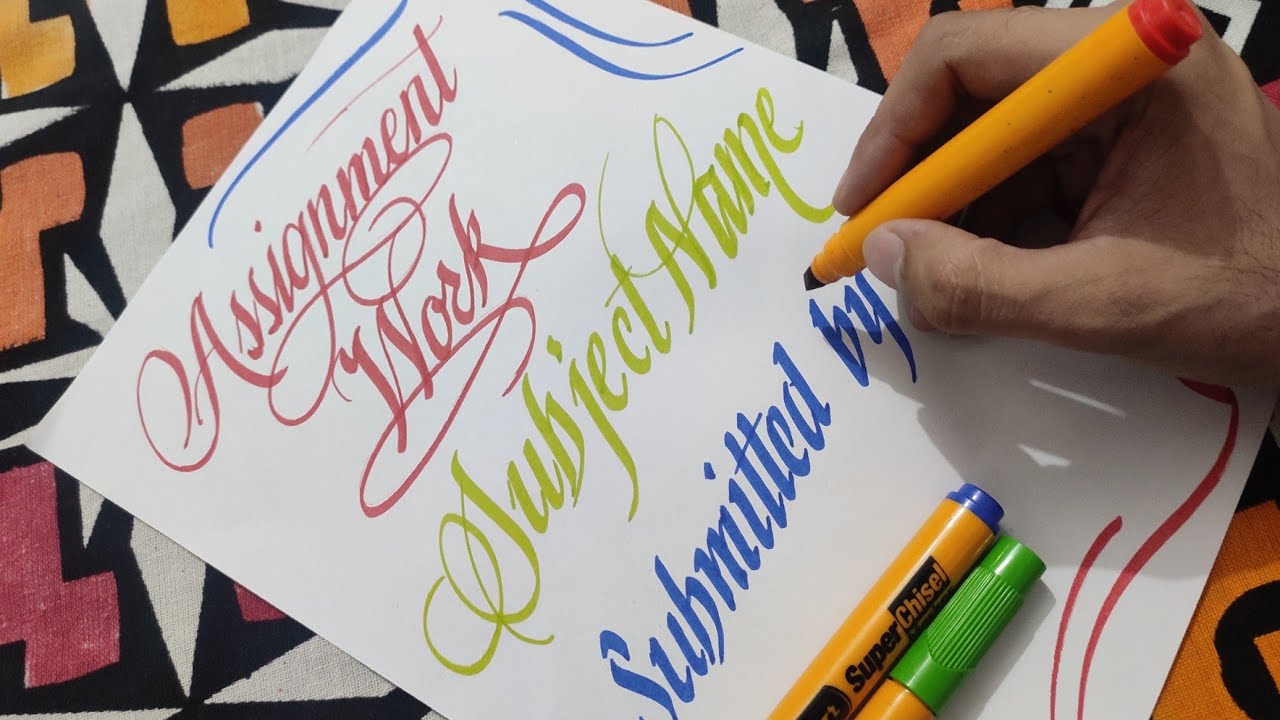 Assignment
Work
Subject Name
Submitted by
Super Chisel